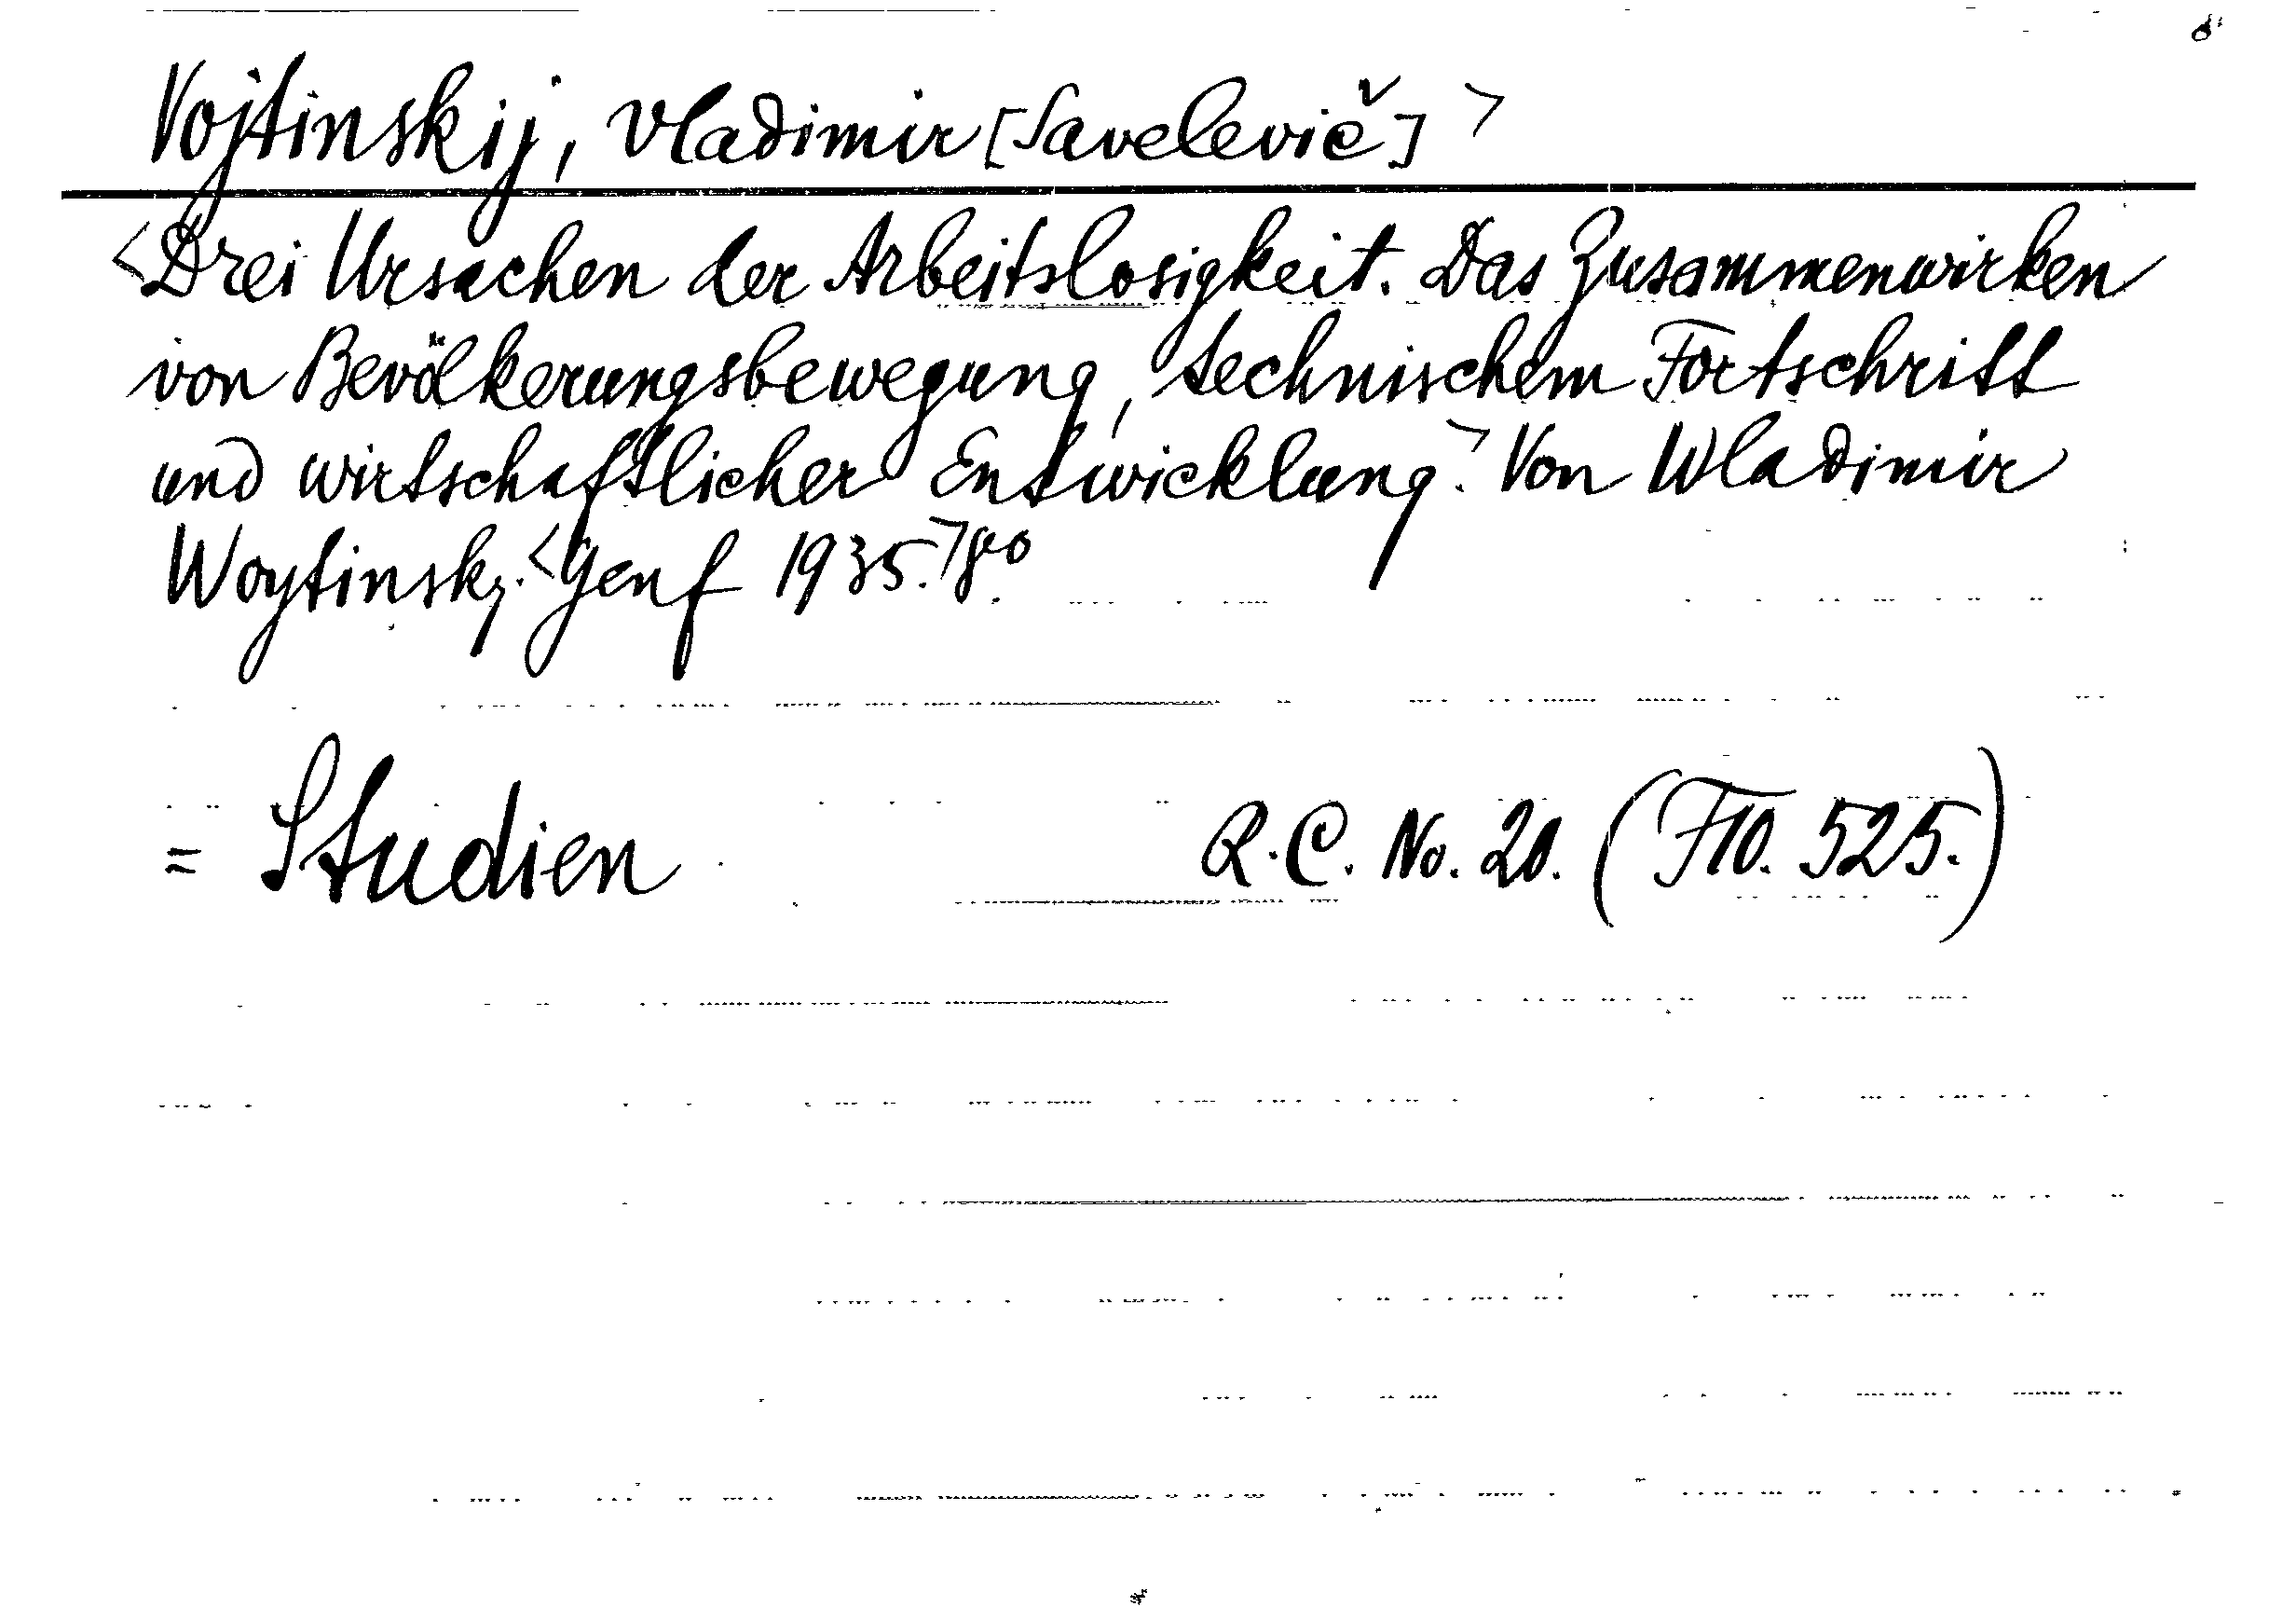 Vojtinskij, Vladimir [Savelevič] >
<Drei Ursachen der Arbeitslosigkeit. Das Zusammenwirken
von Bevölkerungsbewegung, technischem Fortschritt
und wirtschaftlicher Entwicklung.> Von Wladimir
Woytinsky. <Genf 1935.> 8°
= Studien R.C. No. 20. (F10. 525.)